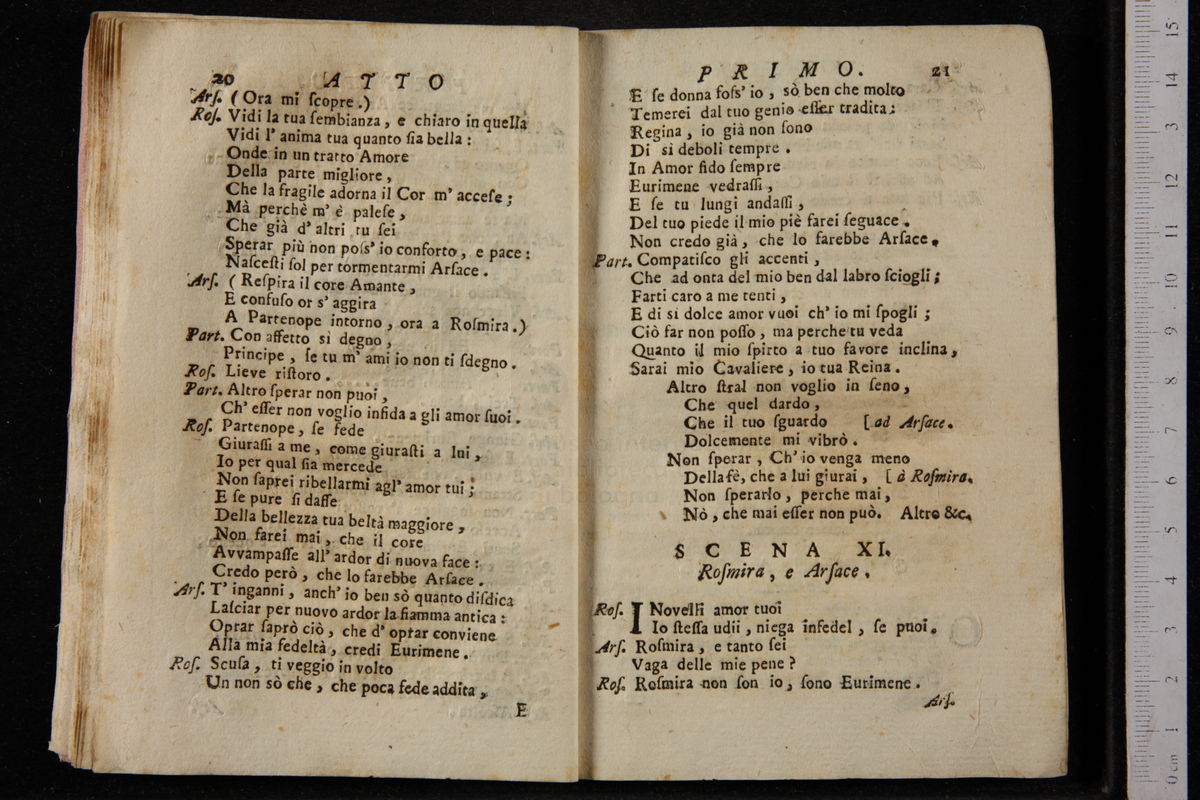 20 ATTO
Arſ. (Ora mi ſcopre.)
Roſ. Vidi la tua ſembianza, e chiaro in quella
Vidi l' anima tua quanto ſia bella:
Onde in un tratto Amore
Della parte migliore,
Che la fragile adorna il Cor m' acceſe;
Mà perchè m' è paleſe,
Che già d' altri tu ſei
Sperar più non poſs' io conforto, e pace:
Naſceſti ſol per tormentarmi Arſace.
Arſ. (Reſpira il core Amante,
E confuſo or s' aggira
A Partenope intorno, ora a Roſmira.)
Part. Con affetto sì degno,
Principe, ſe tu m' ami io non ti ſdegno.
Roſ. Lieve riſtoro.
Part. Altro ſperar non puoi,
Ch' eſſer non voglio infida a gli amor ſuoi.
Roſ. Partenope, ſe fede
Giuraſſi a me, come giuraſti a lui,
Io per qual ſia mercede
Non ſaprei ribellarmi agl' amor tui;
E ſe pure ſi daſſe
Della bellezza tua beltà maggiore,
Non farei mai, che il core
Avvampaſſe all' ardor di nuova face:
Credo però, che lo farebbe Arſace.
Arſ. T' inganni, anch' io ben sò quanto diſdica
Laſciar per nuovo ardor la fiamma antica:
Oprar ſaprò ciò, che d' oprar conviene
Alla mia fedeltà, credi Eurimene.
Roſ. Scuſa, ti veggio in volto
Un non sò che, che poca fede addita,
E
PRIMO. 21
E ſe donna foſs' io, sò ben che molto
Temerei dal tuo genio eſſer tradita;
Regina, io già non ſono
Di sì deboli tempre.
In Amor fido ſempre
Eurimene vedraſſi,
E ſe tu lungi andaſſi,
Del tuo piede il mio piè farei ſeguace.
Non credo già, che lo farebbe Arſace.
Part. Compatiſco gli accenti,
Che ad onta del mio ben dal labro ſciogli;
Farti caro a me tenti,
E di sì dolce amor vuoi ch' io mi ſpogli;
Ciò far non poſſo, ma perche tu veda
Quanto il mio ſpirto a tuo favore inclina,
Sarai mio Cavaliere, io tua Reina.
Altro ſtral non voglio in ſeno,
Che quel dardo,
Che il tuo ſguardo [ad Arſace.
Dolcemente mi vibrò.
Non ſperar, Ch' io venga meno
Della fè, che a lui giurai, [à Roſmira.
Non ſperarlo, perche mai,
Nò, che mai eſſer non può. Altro &c.
SCENA XI.
Roſmira, e Arſace.
Roſ. I Novelli amor tuoi
Io ſteſſa udii, niega infedel, ſe puoi.
Arſ. Roſmira, e tanto ſei
Vaga delle mie pene?
Roſ. Roſmira non ſon io, ſono Eurimene.
Arſ.
0 cm 1 2 3 4 5 6 7 8 9 10 11 12 13 14 15